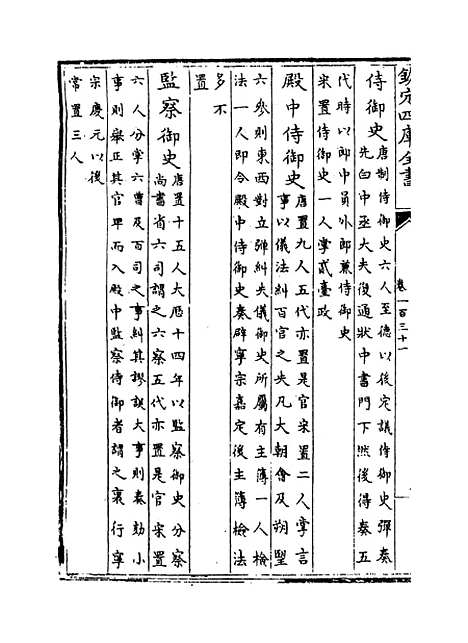 欽定四庫全書
卷一百三十一
侍御史唐制侍御史六人至德以後定議侍御史彈奏
先白中丞大夫後通狀中書門下然後得奏五
代時以郎中員外郎兼侍御史
宋置侍御史一人掌貳臺政
殿中侍御史唐置九人五代亦置是官宋置二人掌言
事以儀法糾百官之失凡大朝會及朔望
六參則東西對立彈糾失儀御史所屬有主簿一人檢
法一人即令殿中侍御史奏辟寧宗嘉定後主簿檢法
多不
置
監察御史唐置十五人大厯十四年以監察御史分察
尚書省六司謂之六察五代亦置是官宋置
六人分掌六曹及百司之事糾其謬誤大事則奏劾小
事則舉正其官卑而入殿中監察侍御者謂之裏行寧
宗慶元以後
常置三人